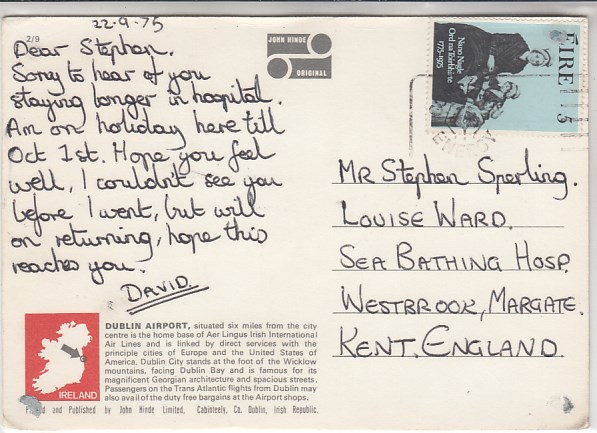 22-9-75
2/9
Dear Stephen.
Sorry to hear of you
staying longer in hospital.
Am on holiday here till
Oct 1st. Hope you feel
well, I couldn't see you
before I went, but will
on returning, hope this
reaches you.
DAVID.
JOHN HINDE
ORIGINAL
Nano Nagle
Ord na Toirbhirte
1775-1975
EIRE
5
ENERGY
MR Stephen Sperling.
LOUISE WARD.
SEA BATHING HOSP.
WESTBROOK, MARGATE.
KENT, ENGLAND.
IRELAND
DUBLIN AIRPORT, situated six miles from the city
centre is the home base of Aer Lingus Irish International
Air Lines and is linked by direct services with the
principle cities of Europe and the United States of
America. Dublin City stands at the foot of the Wicklow
mountains, facing Dublin Bay and is famous for its
magnificent Georgian architecture and spacious streets.
Passengers on the Trans Atlantic flights from Dublin may
also avail of the duty free bargains at the Airport shops.
Printed and Published by John Hinde Limited, Cabinteely, Co. Dublin, Irish Republic.